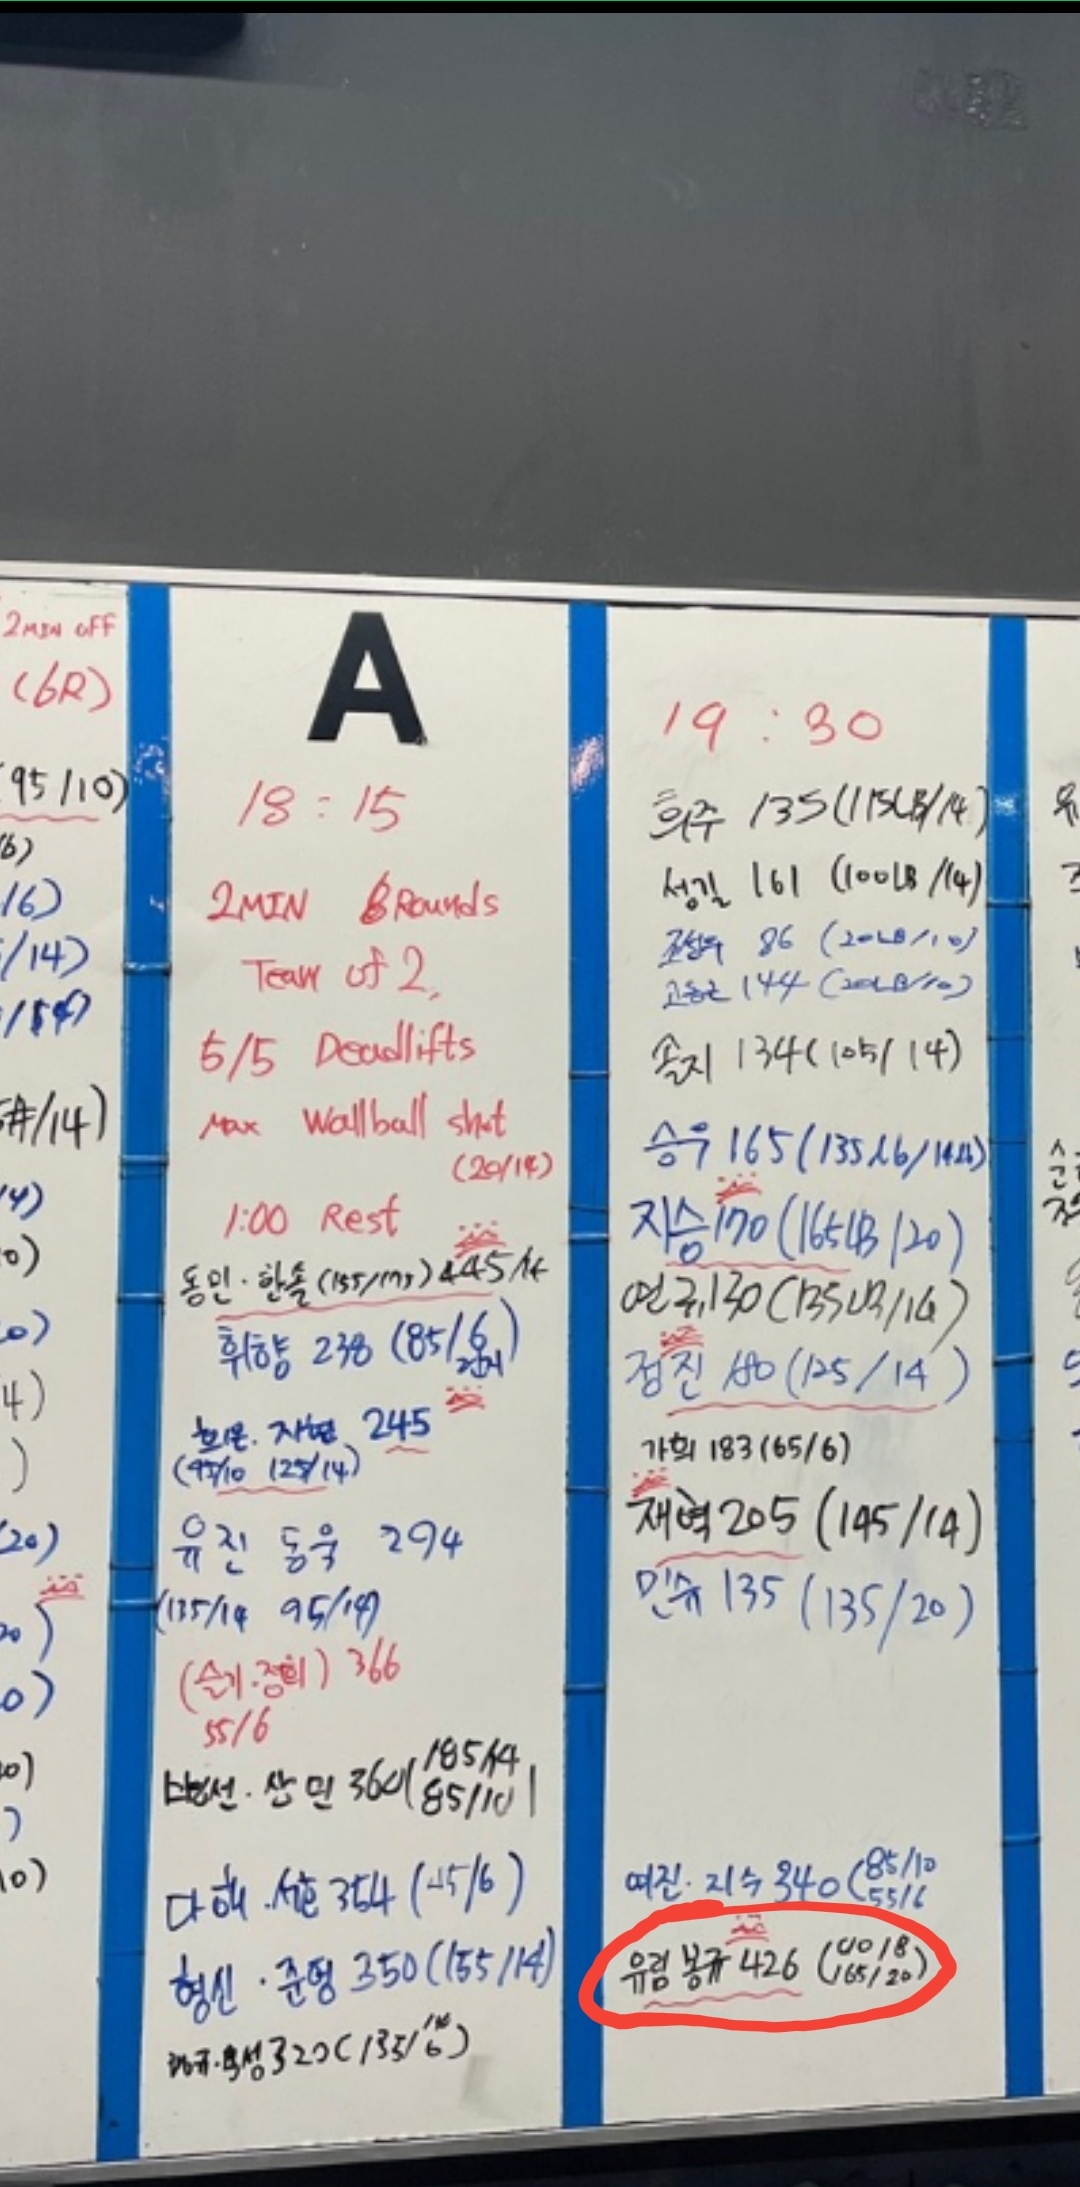 2MIN OFF
(6R)
(95/10)
/6)
/16)
/14)
#/14)
A
18:15
2MIN 6 Rounds
Team of 2,
5/5 Deadlifts
Max Wallball shot
(20/14)
1:00 Rest
동민·한솔 (155/175) 445/14
휘향 238 (85/6)
희은·자현 245
(95/10 125/14)
유진 동욱 294
(135/14 95/14)
(슬기·정희) 366
55/6
산민 360 (185/14
85/10)
다해·서흔 354 ( /6)
형신·준명 350 (155/14)
320 (135/
19:30
희주 135 (115LB/14)
성길 161 (100LB/14)
86 (20LB/10)
144 (20LB/10)
솔지 134 (105/14)
승우 165 (135Lb/14Lb)
지승 170 (165LB/20)
연규 130 (135LB/14)
정진 180 (125/14)
가희 183 (65/6)
재혁 205 (145/14)
민규 135 (135/20)
여진·지수 340 (85/10
55/6
유림 봉규 426 (
165/20)